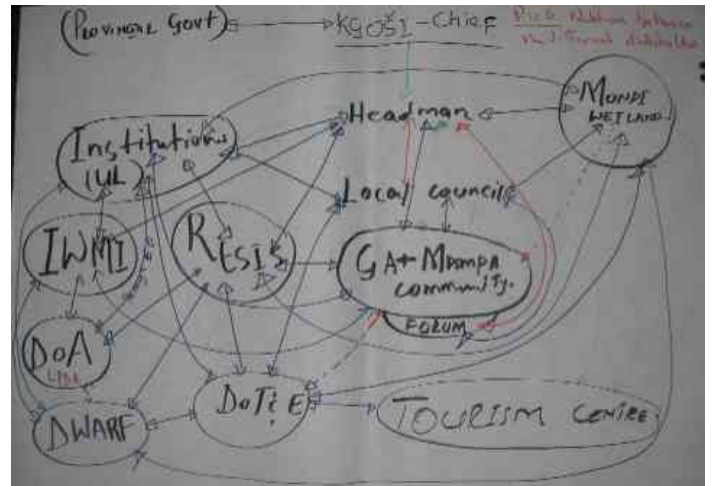 (PROVINCIAL GOVT)
KGOŠI - CHIEF
Headman
MUNDI
WETLAND
Institutions
(UL)
Local councils
IWMI
RESIS
GA-MAMPA
community.
FORUM
DOA
LPDA
DWARF
TOURISM CENTRE